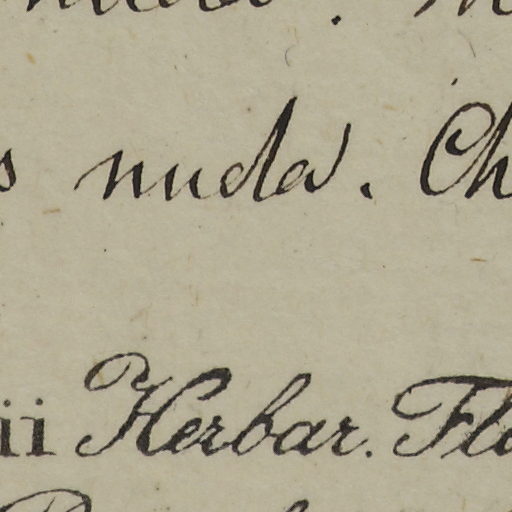 s nuda. Ch
ii Herbar. Flo